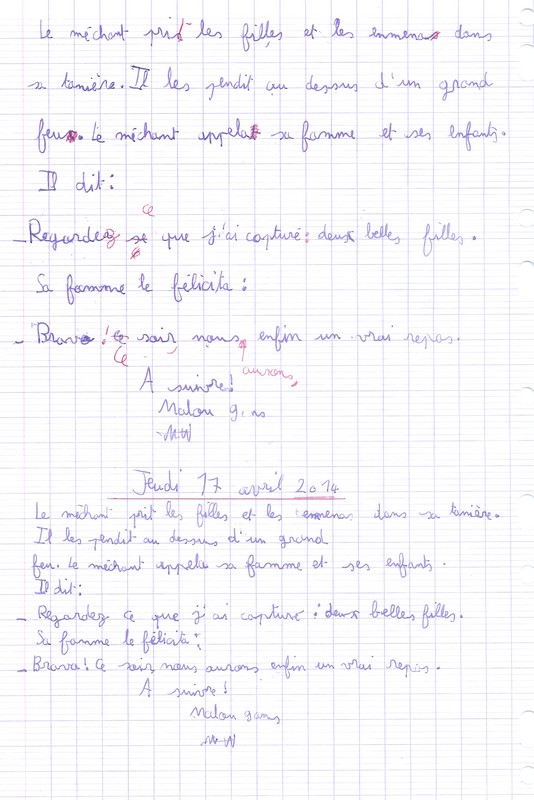 Le méchant prit les filles et les emmena dans
sa tanière. Il les pendit au dessus d'un grand
feu. Le méchant appela sa famme et ses enfants.
Il dit :
ce
- Regardez se que j'ai capturé : deux belles filles.
Sa famme le félicita :
- Bravo ! ce soir, nous enfin un vrai repas.
Ce
aurons
A suivre !
Malou
Jeudi 17 avril 2014
Le méchant prit les filles et les emmena dans sa tanière.
Il les pendit au dessus d'un grand
feu. Le méchant appela sa famme et ses enfants.
Il dit :
- Regardez ce que j'ai capturé : deux belles filles.
Sa famme le félicita :
- Bravo ! Ce soir, nous aurons enfin un vrai repas.
A suivre !
Malou